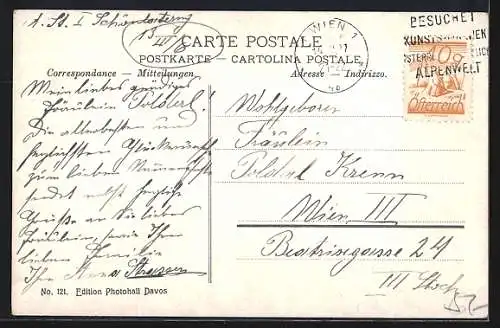 1. St. I Schönlaterng
15
III/8
CARTE POSTALE
POSTKARTE – CARTOLINA POSTALE
Correspondance — Mitteilungen
Adresse — Indirizzo.
WIEN 1
BESUCHET
ÖSTERR
ALPENWELT
10g
Österreich
Mein liebes gnädiges
Fräulein Polderl!
Die allerbesten und
herzlichsten Glückwünsche
zum lieben Namensfeste
sendet nebst herzliche
Grüsse an Sie liebes
Fräulein, sowie Ihre
lieben Familie
Ihre Anna
Wohlgeboren
Fräulein
Polderl Krenn
Wien III
Beatrixgasse 24
III Stock
No. 121. Edition Photohall Davos